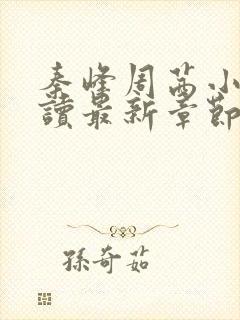 秦峰周茜小
讀最新章節
孫奇茹